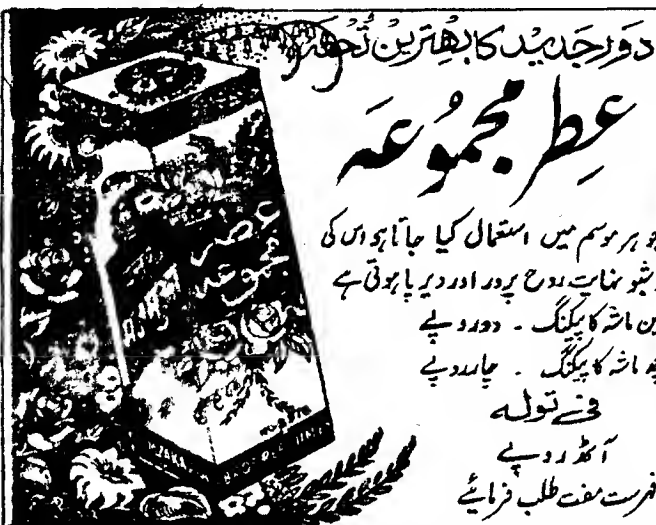 دورِ جدید کا بہترین تحفہ
عِطر مجموُعَہ
جو ہر موسم میں استعمال کیا جاتا ہو اس کی
خوشبو نہایت روح پرور اور دیر پا ہوتی ہے
تین ماشہ کا پیکنگ ۔ دو روپے
چھ ماشہ کا پیکنگ ۔ چار روپے
فی تولہ
آٹھ روپے
فہرست مفت طلب فرمائیے
عطر
مجموعہ